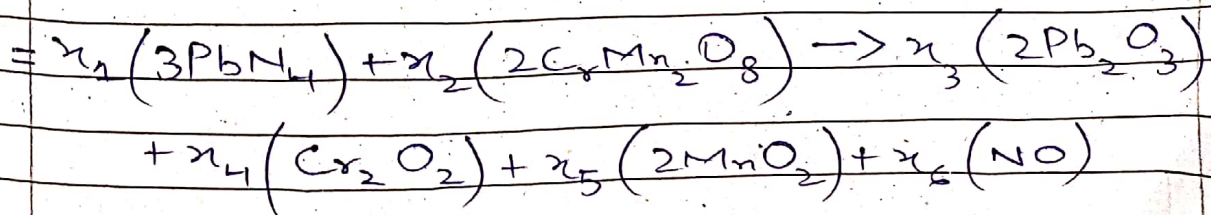 = x₁ (3PbN₄) + x₂ (2CrMn₂O₈) → x₃ (2Pb₂O₃)
+ x₄ (Cr₂O₂) + x₅ (2MnO₂) + x₆ (NO)